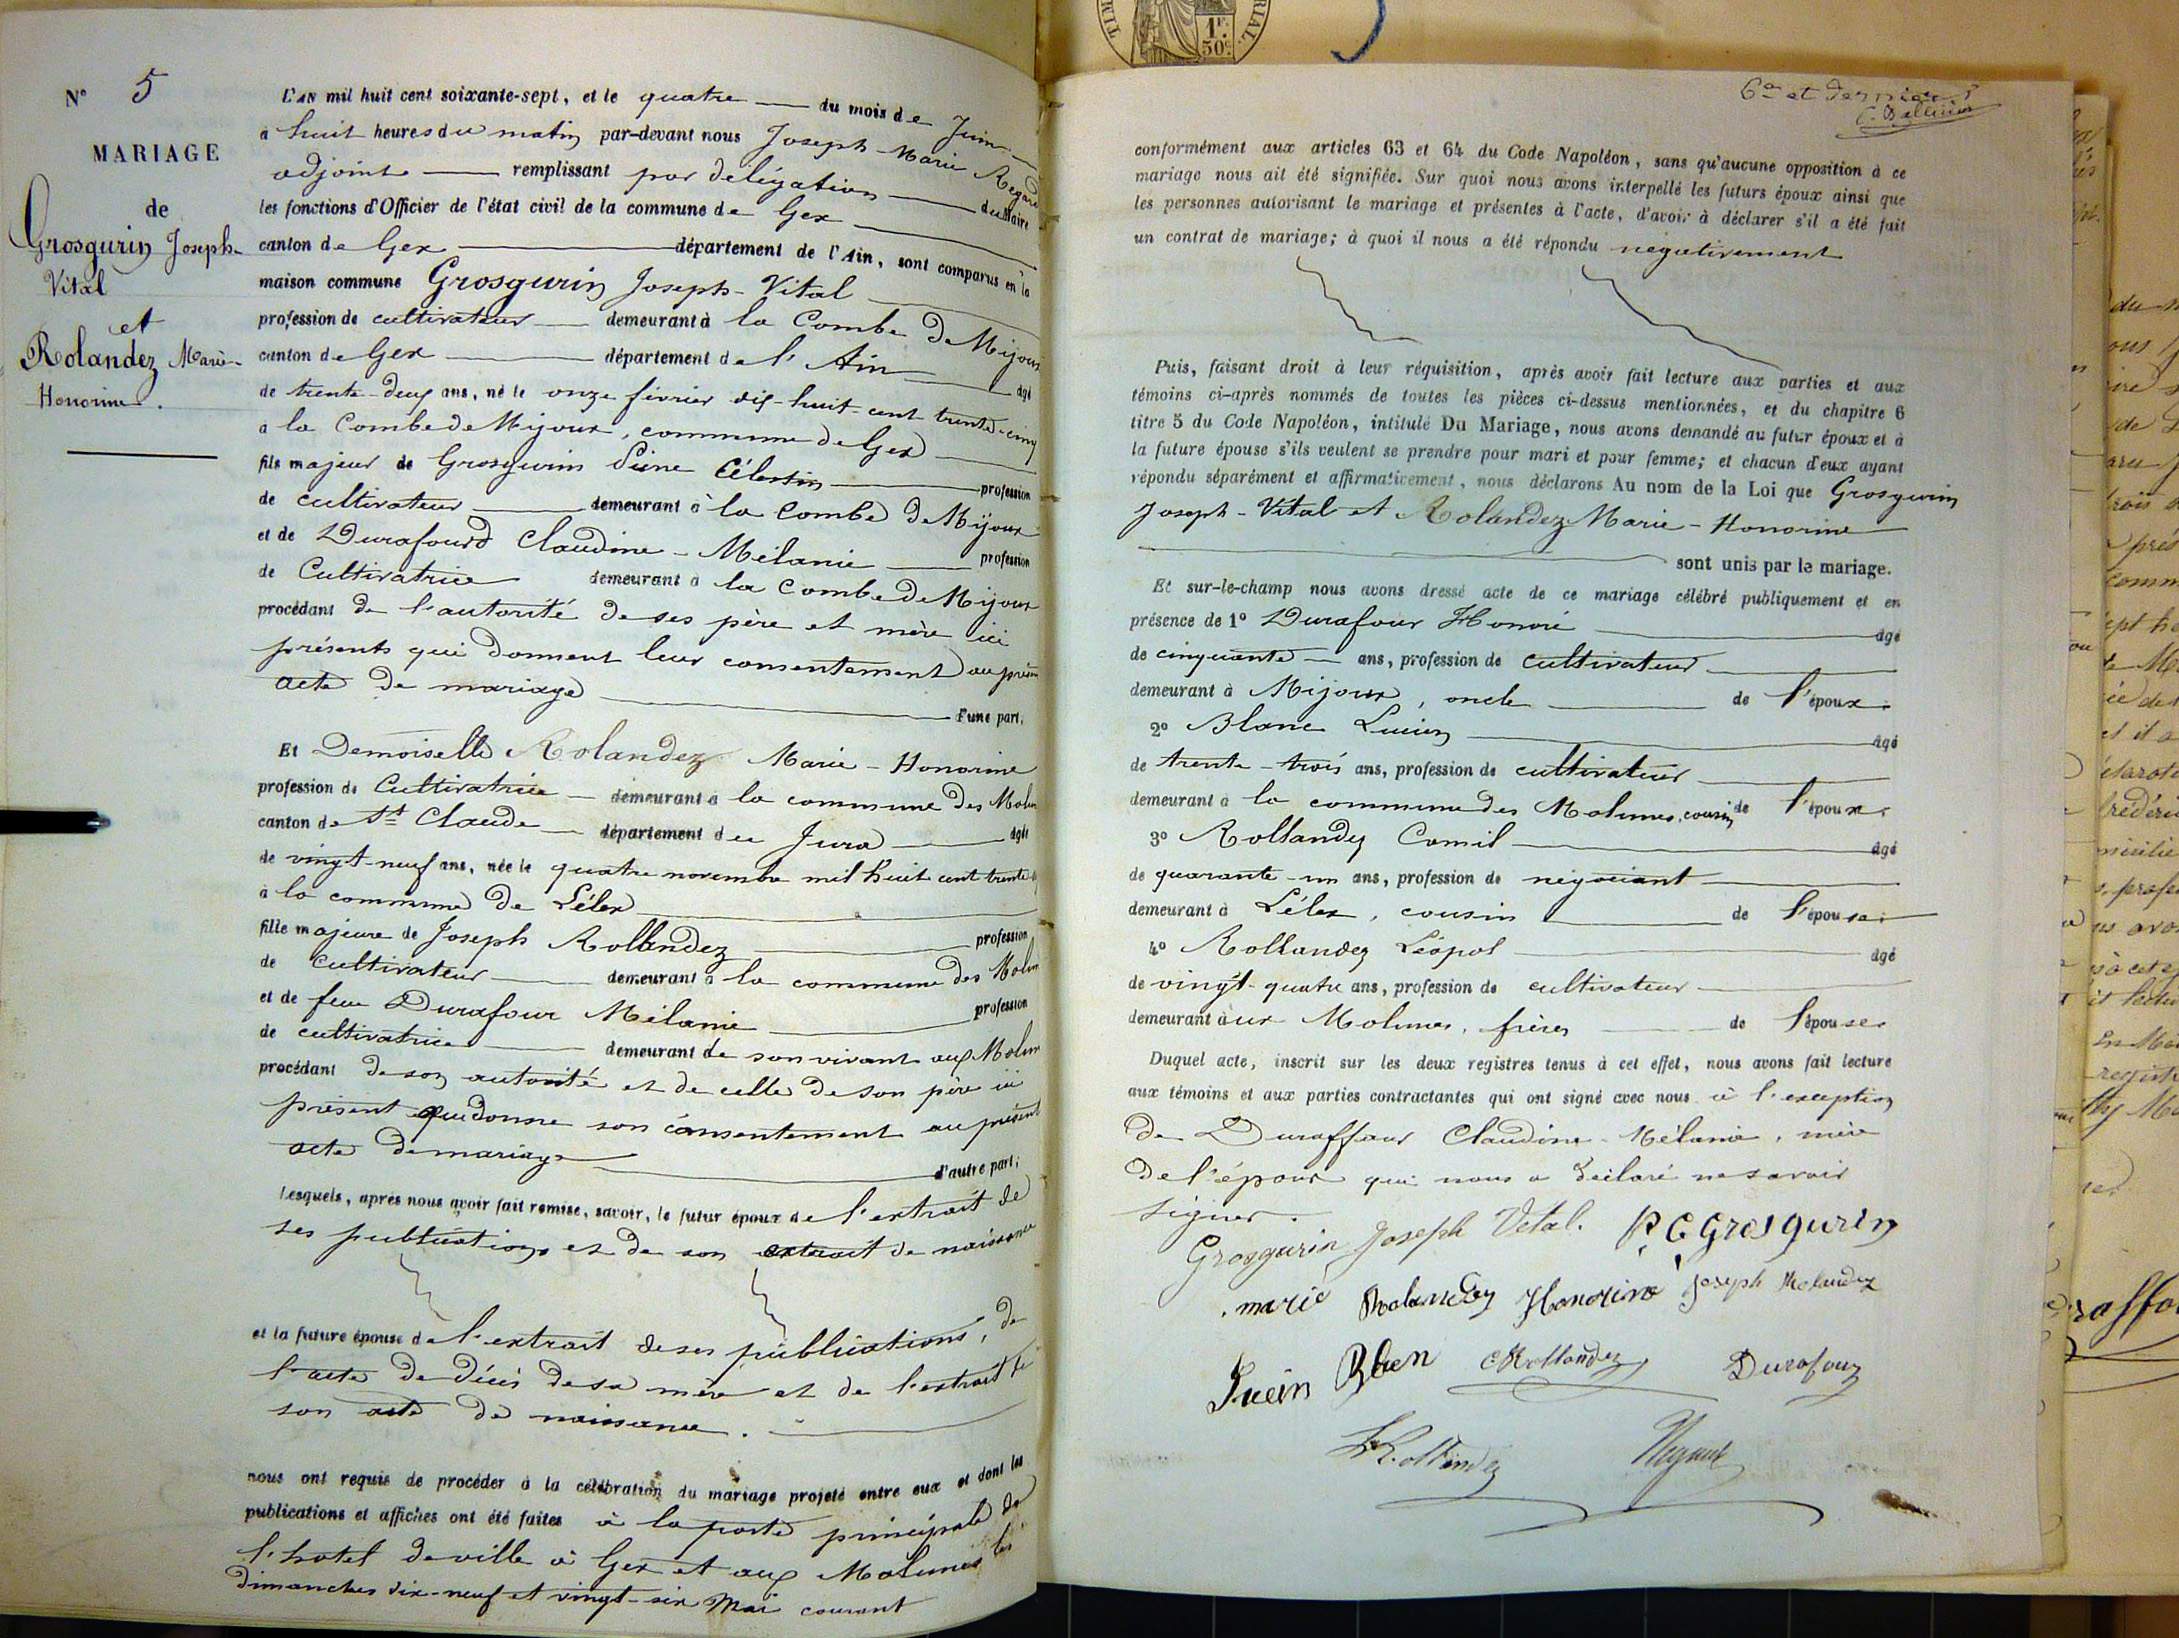 N° 5
MARIAGE
de
Grosgurin Joseph-
Vital
et
Rolandez Marie-
Honorine.
L'AN mil huit cent soixante-sept, et le quatre du mois de Juin
à huit heures du matin par-devant nous Joseph-Marie Regard
adjoint remplissant par délégation du Maire
les fonctions d'Officier de l'état civil de la commune de Gex
canton de Gex département de l'Ain, sont comparus en la
maison commune Grosgurin Joseph-Vital
profession de cultivateur demeurant à la Combe de Mijoux
canton de Gex département de l'Ain âgé
de trente-deux ans, né le onze février dix-huit-cent trente-cinq
à la Combe de Mijoux, commune de Gex
fils majeur de Grosgurin Célestin profession
de cultivateur demeurant à la Combe de Mijoux
et de Durafourd Claudine-Mélanie profession
de Cultivatrice demeurant à la Combe de Mijoux
procédant de l'autorité de ses père et mère ici
présents qui donnent leur consentement au présent
acte de mariage d'une part,
Et Demoiselle Rolandez Marie-Honorine
profession de Cultivatrice demeurant à la commune des Molun
canton de St Claude département du Jura âgée
de vingt-neuf ans, née le quatre novembre mil huit cent trente
à la commune de Lélex
fille majeure de Joseph Rollandez profession
de cultivateur demeurant à la commune des Molun
et de feue Durafour Mélanie profession
de cultivatrice demeurant de son vivant aux Molun
procédant de son autorité et de celle de son père ici
présent qui donne son consentement au présent
acte de mariage d'autre part;
Lesquels, après nous avoir fait remise, savoir, le futur époux de l'extrait de
ses publications et de son extrait de naissance
et la future épouse de l'extrait de ses publications, de
l'acte de décès de sa mère et de l'extrait de
son acte de naissance.
nous ont requis de procéder à la célébration du mariage projeté entre eux et dont les
publications et affiches ont été faites à la porte principale de
l'hotel de ville à Gex et aux Molunes les
dimanches dix-neuf et vingt-six Mai courant
1F.
50c
6e et dernier
conformément aux articles 63 et 64 du Code Napoléon, sans qu'aucune opposition à ce
mariage nous ait été signifiée. Sur quoi nous avons interpellé les futurs époux ainsi que
les personnes autorisant le mariage et présentes à l'acte, d'avoir à déclarer s'il a été fait
un contrat de mariage; à quoi il nous a été répondu négativement
Puis, faisant droit à leur réquisition, après avoir fait lecture aux parties et aux
témoins ci-après nommés de toutes les pièces ci-dessus mentionnées, et du chapitre 6
titre 5 du Code Napoléon, intitulé Du Mariage, nous avons demandé au futur époux et à
la future épouse s'ils veulent se prendre pour mari et pour femme; et chacun d'eux ayant
répondu séparément et affirmativement, nous déclarons Au nom de la Loi que Grosgurin
Joseph-Vital et Rolandez Marie-Honorine
sont unis par le mariage.
Et sur-le-champ nous avons dressé acte de ce mariage célébré publiquement et en
présence de 1° Durafour Honoré âgé
de cinquante ans, profession de cultivateur
demeurant à Mijoux, oncle de l'époux.
2° Blanc Lucien âgé
de trente-trois ans, profession de cultivateur
demeurant à la commune des Molunes, cousin de l'époux.
3° Rollandez Camil âgé
de quarante-un ans, profession de négociant
demeurant à Lélex, cousin de l'épouse.
4° Rollandez Léopol âgé
de vingt-quatre ans, profession de cultivateur
demeurant aux Molunes, frères de l'épouse
Duquel acte, inscrit sur les deux registres tenus à cet effet, nous avons fait lecture
aux témoins et aux parties contractantes qui ont signé avec nous à l'exception
de Duraffour Claudine-Mélanie, mère
de l'époux qui nous a déclaré ne savoir
signer.
Grosgurin Joseph Vetal. P. C Grosgurin
marie Rolandez Honorine Joseph Rolandez
Lucin Blan C Rollandez Durafour
L. Rollandez Regard